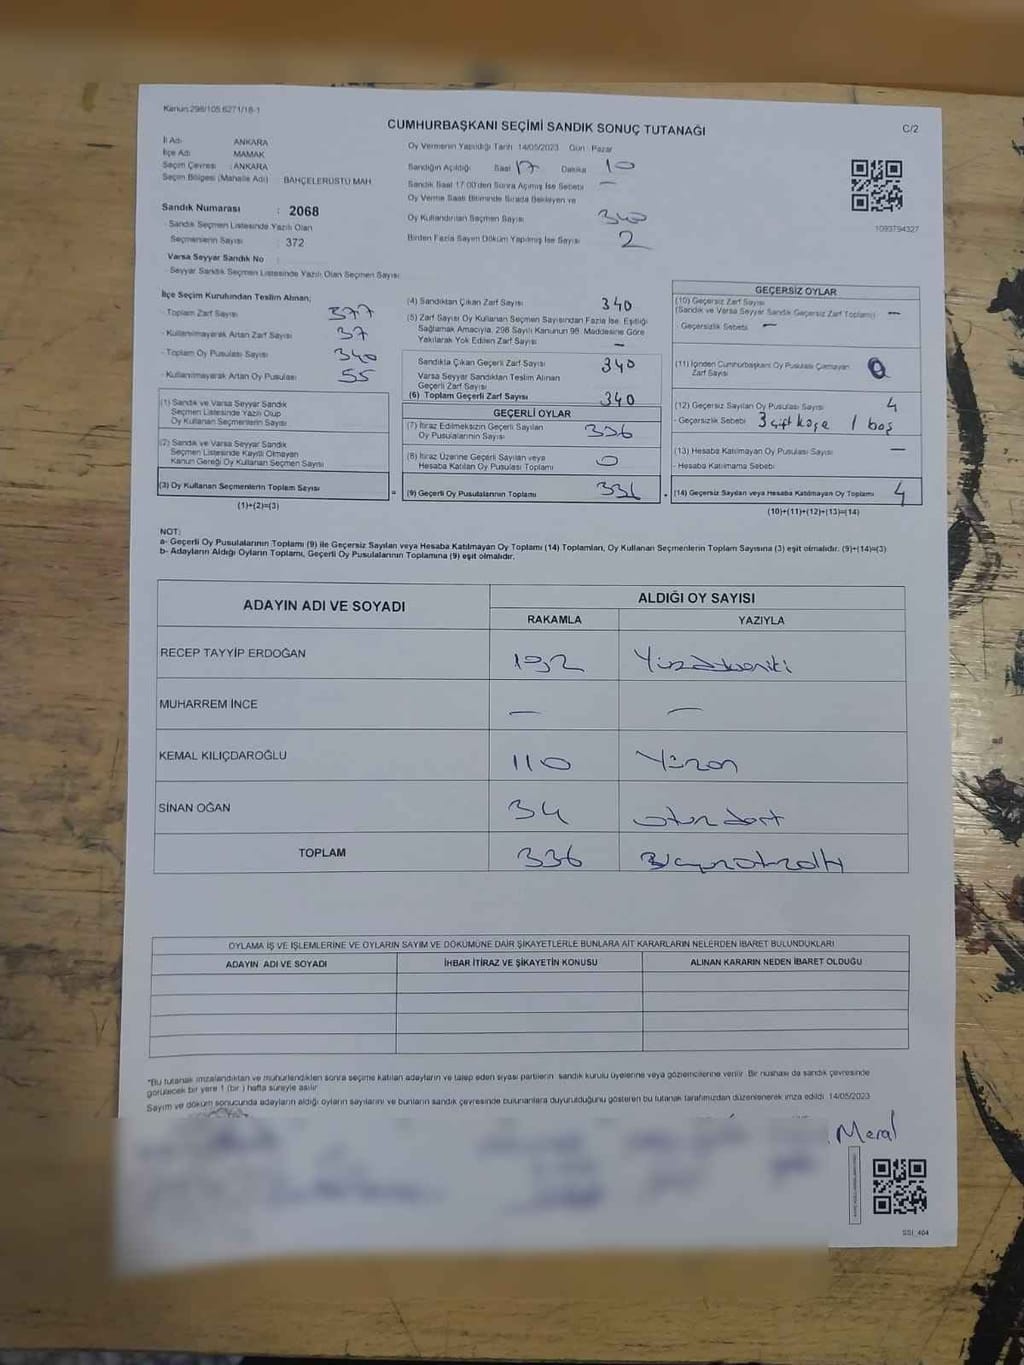 Kanun:298/105.6271/18-1
CUMHURBAŞKANI SEÇİMİ SANDIK SONUÇ TUTANAĞI
C/2
İl Adı : ANKARA
İlçe Adı : MAMAK
Seçim Çevresi : ANKARA
Seçim Bölgesi (Mahalle Adı) : BAHÇELERÜSTÜ MAH.
Sandık Numarası : 2068
- Sandık Seçmen Listesinde Yazılı Olan
Seçmenlerin Sayısı : 372
Varsa Seyyar Sandık No :
- Seyyar Sandık Seçmen Listesinde Yazılı Olan Seçmen Sayısı:
Oy Vermenin Yapıldığı Tarih :14/05/2023 Gün : Pazar
Sandığın Açıldığı Saat 17 Dakika 10
Sandık Saat 17.00'den Sonra Açılmış İse Sebebi —
Oy Verme Saati Bitiminde Sırada Bekleyen ve
Oy Kullandırılan Seçmen Sayısı 340
Birden Fazla Sayım Döküm Yapılmış İse Sayısı 2
1093794327
İlçe Seçim Kurulundan Teslim Alınan;
- Toplam Zarf Sayısı 377
- Kullanılmayarak Artan Zarf Sayısı 37
- Toplam Oy Pusulası Sayısı 340
- Kullanılmayarak Artan Oy Pusulası 55
(1) Sandık ve Varsa Seyyar Sandık
Seçmen Listesinde Yazılı Olup
Oy Kullanan Seçmenlerin Sayısı
(2) Sandık ve Varsa Seyyar Sandık
Seçmen Listesinde Kayıtlı Olmayan
Kanun Gereği Oy Kullanan Seçmen Sayısı
(3) Oy Kullanan Seçmenlerin Toplam Sayısı
(1)+(2)=(3)
(4) Sandıktan Çıkan Zarf Sayısı 340
(5) Zarf Sayısı Oy Kullanan Seçmen Sayısından Fazla İse, Eşitliği
Sağlamak Amacıyla, 298 Sayılı Kanunun 98. Maddesine Göre
Yakılarak Yok Edilen Zarf Sayısı —
Sandıkla Çıkan Geçerli Zarf Sayısı 340
Varsa Seyyar Sandıktan Teslim Alınan
Geçerli Zarf Sayısı
(6) Toplam Geçerli Zarf Sayısı 340
GEÇERLİ OYLAR
(7) İtiraz Edilmeksizin Geçerli Sayılan
Oy Pusulalarının Sayısı 336
(8) İtiraz Üzerine Geçerli Sayılan veya
Hesaba Katılan Oy Pusulası Toplamı 0
= (9) Geçerli Oy Pusulalarının Toplamı 336
GEÇERSİZ OYLAR
(10) Geçersiz Zarf Sayısı
(Sandık ve Varsa Seyyar Sandık Geçersiz Zarf Toplamı) —
- Geçersizlik Sebebi: —
(11) İçinden Cumhurbaşkanı Oy Pusulası Çıkmayan
Zarf Sayısı 0
(12) Geçersiz Sayılan Oy Pusulası Sayısı 4
- Geçersizlik Sebebi: 3 çift kaşe 1 boş
(13) Hesaba Katılmayan Oy Pusulası Sayısı —
- Hesaba Katılmama Sebebi:
(14) Geçersiz Sayılan veya Hesaba Katılmayan Oy Toplamı 4
(10)+(11)+(12)+(13)=(14)
NOT:
a- Geçerli Oy Pusulalarının Toplamı (9) ile Geçersiz Sayılan veya Hesaba Katılmayan Oy Toplamı (14) Toplamları, Oy Kullanan Seçmenlerin Toplam Sayısına (3) eşit olmalıdır. (9)+(14)=(3)
b- Adayların Aldığı Oyların Toplamı, Geçerli Oy Pusulalarının Toplamına (9) eşit olmalıdır.
ADAYIN ADI VE SOYADI
ALDIĞI OY SAYISI
RAKAMLA YAZIYLA
RECEP TAYYİP ERDOĞAN 192
MUHARREM İNCE — —
KEMAL KILIÇDAROĞLU 110 Yüzon
SİNAN OĞAN 34 otuzdört
TOPLAM 336
OYLAMA İŞ VE İŞLEMLERİNE VE OYLARIN SAYIM VE DÖKÜMÜNE DAİR ŞİKAYETLERLE BUNLARA AİT KARARLARIN NELERDEN İBARET BULUNDUKLARI
ADAYIN ADI VE SOYADI İHBAR İTİRAZ VE ŞİKAYETİN KONUSU ALINAN KARARIN NEDEN İBARET OLDUĞU
*Bu tutanak imzalandıktan ve mühürlendikten sonra seçime katılan adayların ve talep eden siyasi partilerin sandık kurulu üyelerine veya gözlemcilerine verilir. Bir nüshası da sandık çevresinde
görülecek bir yere 1 (bir ) hafta süreyle asılır.
Sayım ve döküm sonucunda adayların aldığı oyların sayılarını ve bunların sandık çevresinde bulunanlara duyurulduğunu gösteren bu tutanak tarafımızdan düzenlenerek imza edildi. 14/05/2023
Meral
SSI_404